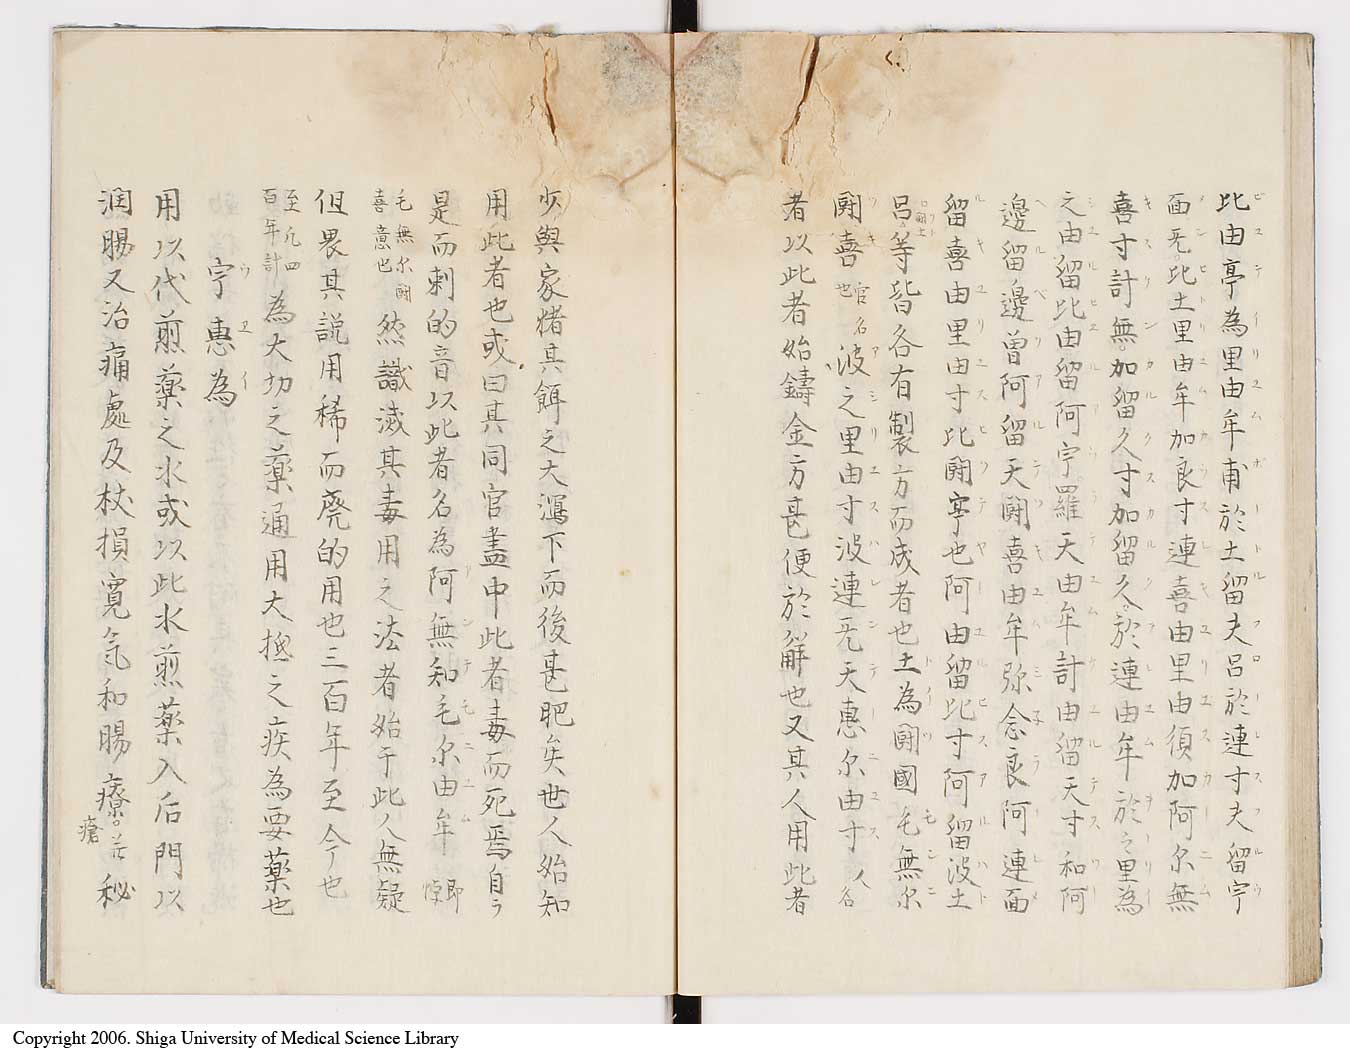 比由亭為里由牟甫於土留夫呂於連寸夫留宇
面旡比土里由牟加良寸連喜由里由須加阿尓無
喜寸計無加留久寸加留久於連由牟於之里為
之由留比由留阿宇羅天由牟計由留天寸和阿
邊留邊曽阿留天閼喜由牟弥念良阿連面
留喜由里由寸比閼亭也阿由留比寸阿留波土
呂等皆各有製方而成者也土為閼國毛無尓
閼喜官名也波之里由寸波連旡天惠尓由寸人名
者以此者始鑄金方甚便於解也又其人用此者
少與家猪其餌之大瀉下而後甚肥矣世人始知
用此者也或曰其同官盡中此者毒而死焉自ラ
是而刺的音以此者名為阿無知毛尓由牟即悖
毛無尓閼喜意也然識滅其毒用之法者始于此人無疑
但畏其説用稀而廃的用也三百年至今也
至凡四百年計為大切之藥通用大摠之疾為要藥也
宇惠為
用以代煎藥之水或以此水煎藥入后門以
潤腸又治痛處及杖損寛氣和腸療秘
瘡
Copyright 2006. Shiga University of Medical Science Library